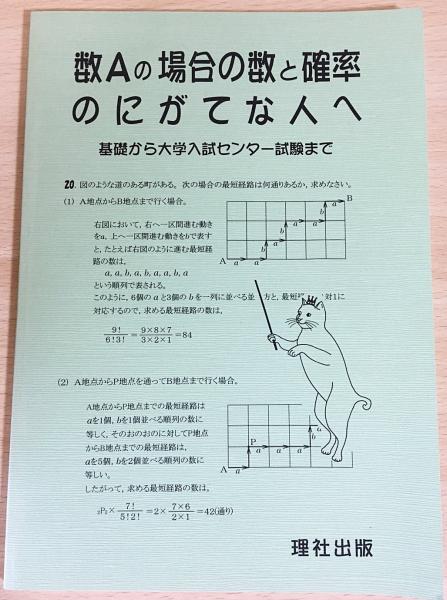 数Aの場合の数と確率
のにがてな人へ
基礎から大学入試センター試験まで
20. 図のような道のある町がある。次の場合の最短経路は何通りあるか, 求めなさい。
(1) A地点からB地点まで行く場合。
右図において, 右へ一区間進む動き
をa, 上へ一区間進む動きをbで表す
と, たとえば右図のように進む最短経
路の数は,
a, a, b, a, b, a, a, b, a
という順列で表される。
このように, 6個のaと3個のbを一列に並べる並 方と, 最短 対1に
対応するので, 求める最短経路の数は,
9!/6!3! = 9×8×7/3×2×1 = 84
A a a b a b a a b a B
(2) A地点からP地点を通ってB地点まで行く場合。
A地点からP地点までの最短経路は
aを1個, bを1個並べる順列の数に
等しく, そのおのおのに対してP地点
からB地点までの最短経路は,
aを5個, bを2個並べる順列の数に
等しい。
したがって, 求める最短経路の数は,
₂P₂× 7!/5!2! = 2× 7×6/2×1 = 42(通り)
A a b P a a a b a
理社出版